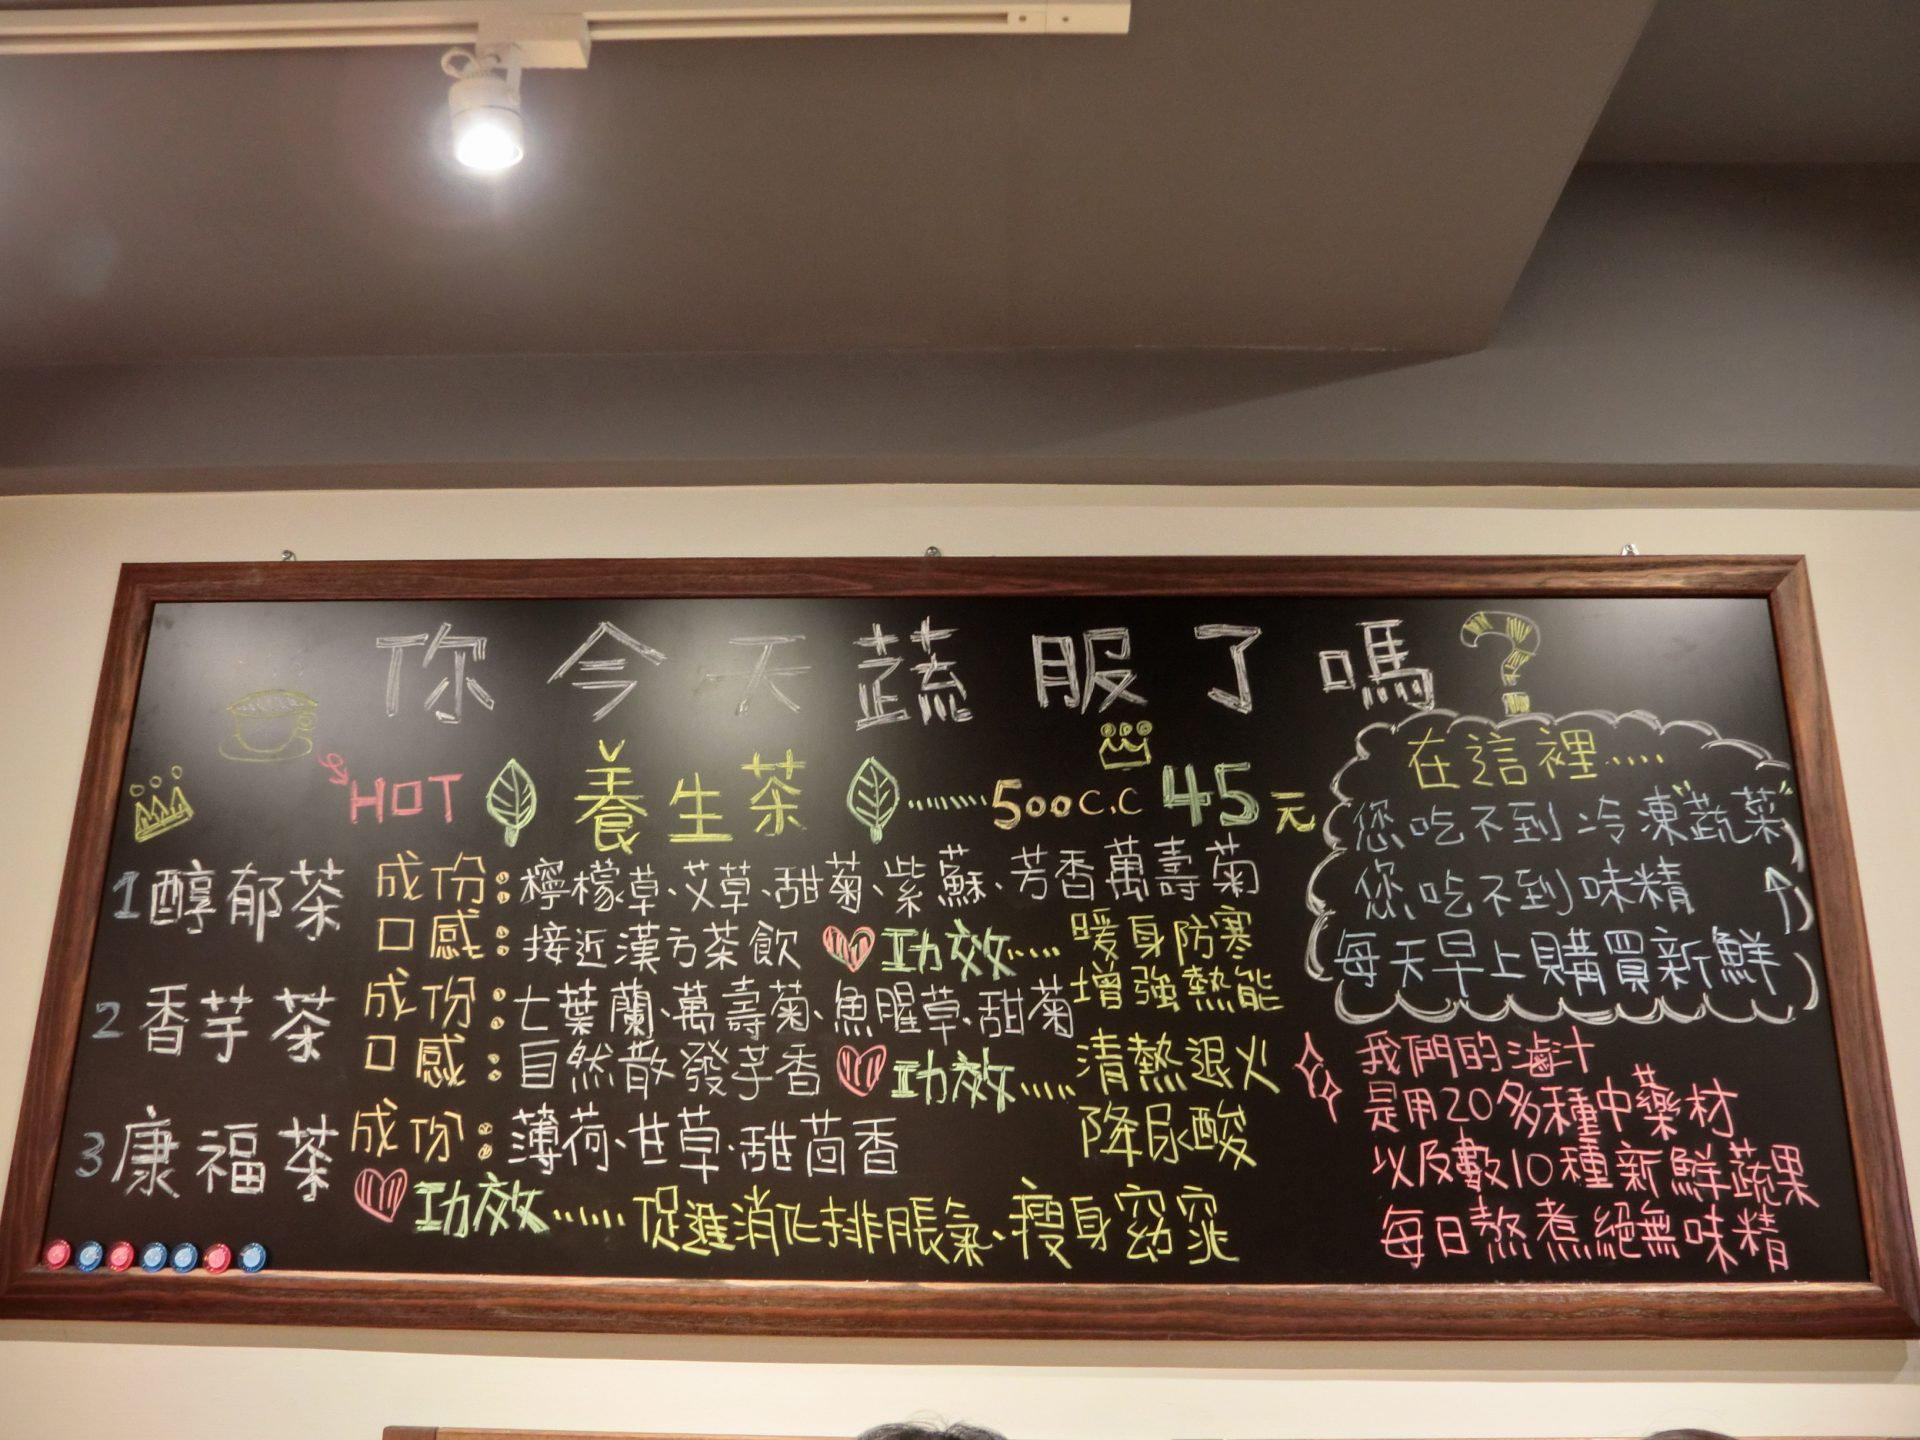 你今天蔬服了嗎?
HOT 養生茶 ......500c.c 45元
1 醇郁茶 成份:檸檬草、艾草、甜菊、紫蘇、芳香萬壽菊
口感:接近漢方茶飲 功效....暖身防寒
增強熱能
2 香芋茶 成份:七葉蘭、萬壽菊、魚腥草、甜菊
口感:自然散發芋香 功效....清熱退火
降尿酸
3 康福茶 成份:薄荷、甘草、甜茴香
功效......促進消化排脹氣、瘦身窈窕
在這裡....
您吃不到冷凍"蔬菜"
您吃不到味精
每天早上購買新鮮
我們的滷汁
是用20多種中藥材
以及數10種新鮮蔬果
每日熬煮絕無味精